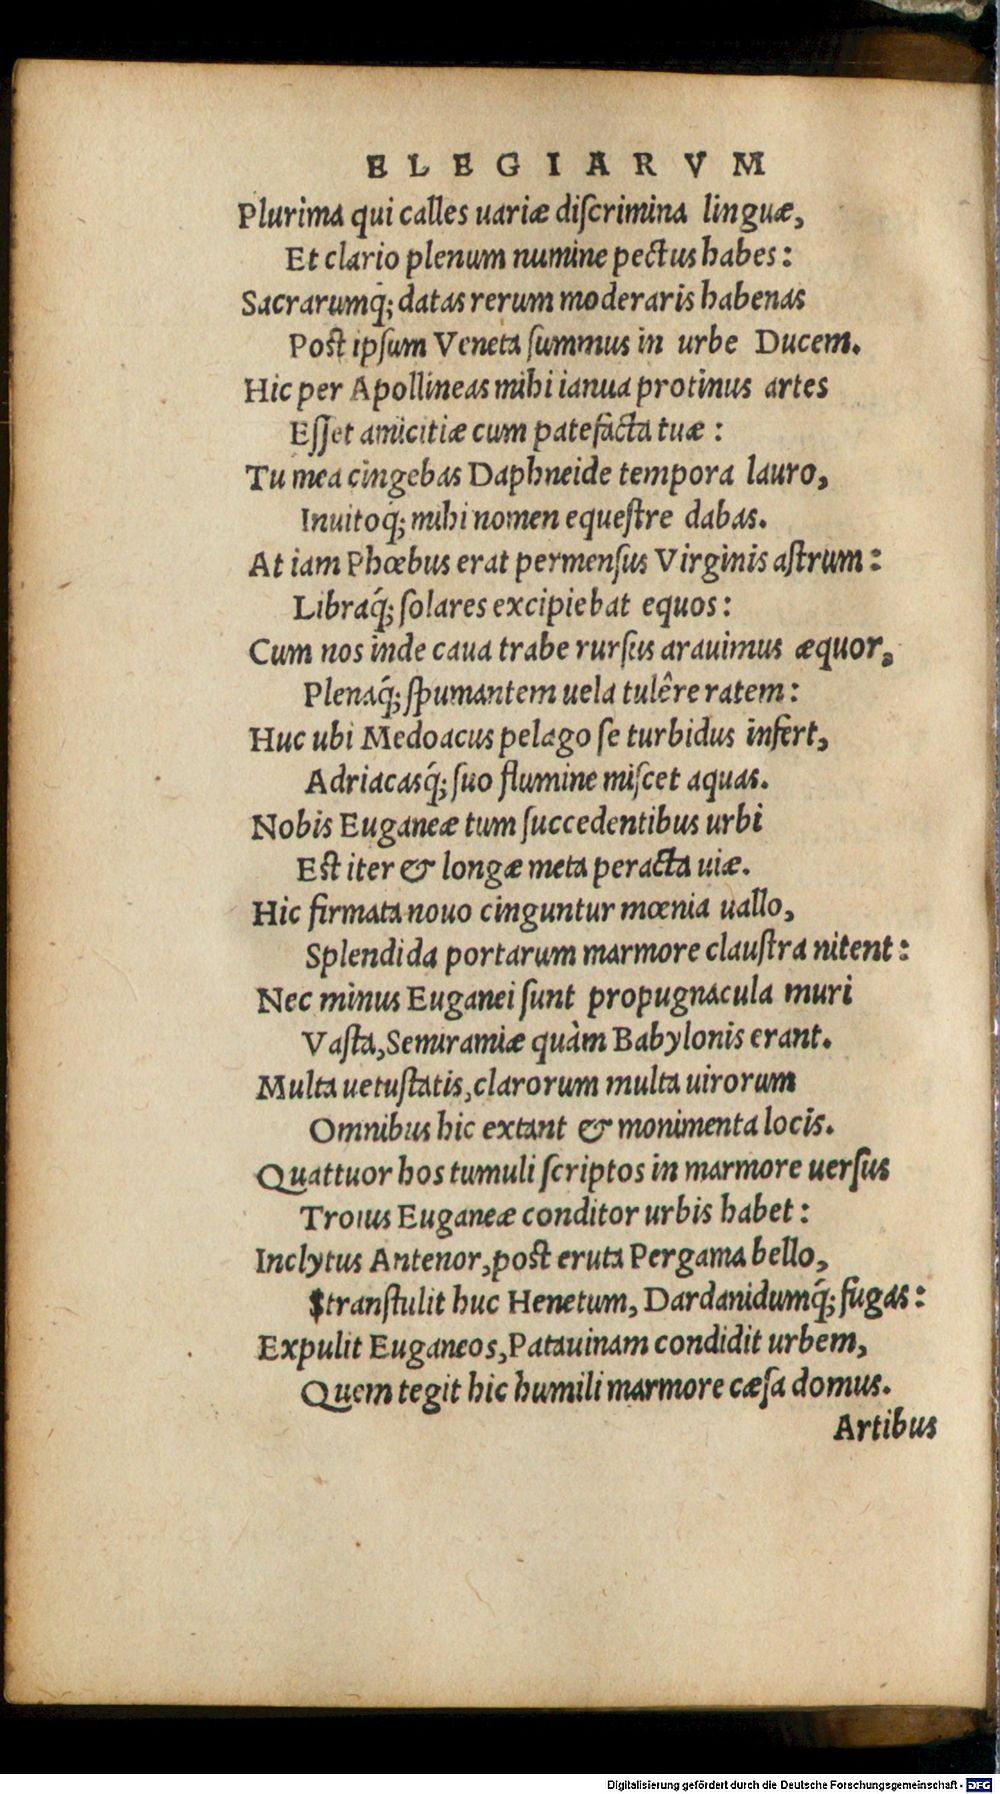 ELEGIARVM
Plurima qui calles uariæ diſcrimina linguæ,
Et clario plenum numine pectus habes:
Sacrarumq́; datas rerum moderaris habenas
Post ipſum Veneta ſummus in urbe Ducem.
Hic per Apollineas mihi ianua protinus artes
Eſſet amicitiæ cum patefacta tuæ:
Tu mea cingebas Daphneide tempora lauro,
Inuitoq́; mihi nomen equeſtre dabas.
At iam Phœbus erat permenſus Virginis aſtrum:
Libraq́; ſolares excipiebat equos:
Cum nos inde caua trabe rurſus arauimus æquor,
Plenaq́; ſpumantem uela tulêre ratem:
Huc ubi Medoacus pelago ſe turbidus infert,
Adriacasq́; ſuo flumine miſcet aquas.
Nobis Euganeæ tum ſuccedentibus urbi
Est iter & longæ meta peracta uiæ.
Hic firmata nouo cinguntur mœnia uallo,
Splendida portarum marmore clauſtra nitent:
Nec minus Euganei ſunt propugnacula muri
Vaſta, Semiramiæ quàm Babylonis erant.
Multa uetuſtatis, clarorum multa uirorum
Omnibus hic extant & monimenta locis.
Quattuor hos tumuli ſcriptos in marmore uerſus
Troius Euganeæ conditor urbis habet:
Inclytus Antenor, post eruta Pergama bello,
tranſtulit huc Henetum, Dardanidumq́; fugas:
Expulit Euganeos, Patauinam condidit urbem,
Quem tegit hic humili marmore cæſa domus.
Artibus
Digitalisierung gefördert durch die Deutsche Forschungsgemeinschaft - DFG